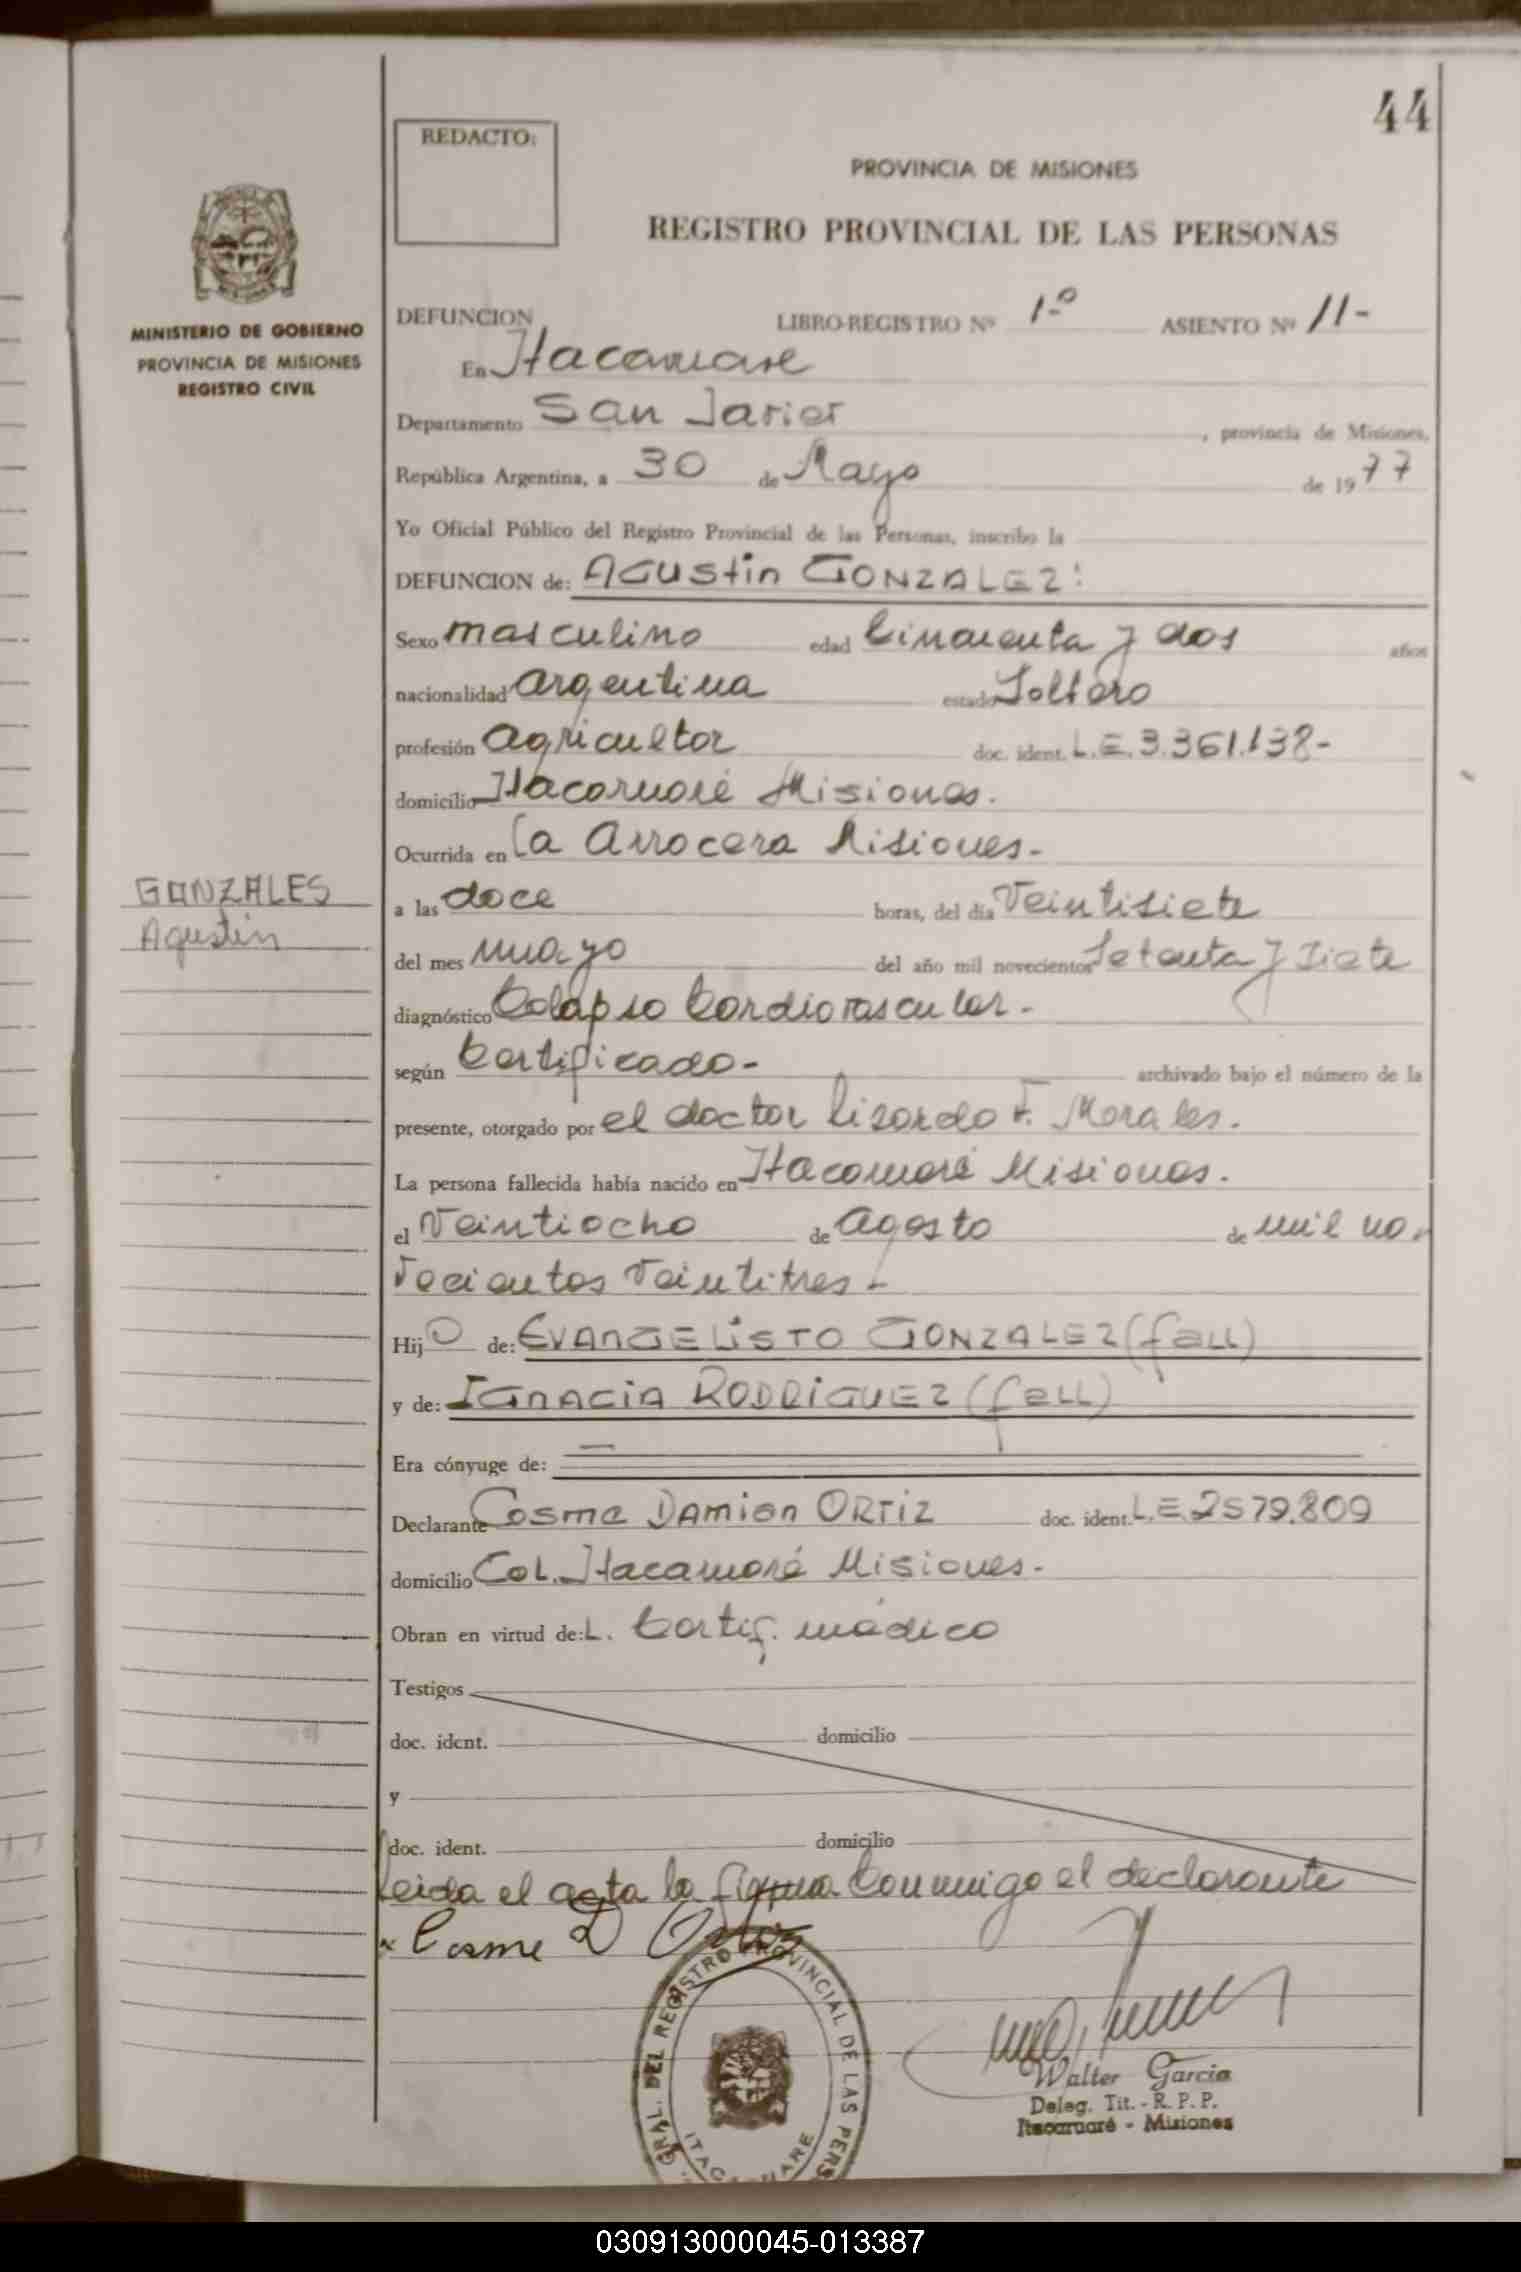 44
REDACTO:
PROVINCIA DE MISIONES
REGISTRO PROVINCIAL DE LAS PERSONAS
MINISTERIO DE GOBIERNO
PROVINCIA DE MISIONES
REGISTRO CIVIL
DEFUNCION LIBRO-REGISTRO Nº 1-º ASIENTO Nº 11-
En Itacaruare
Departamento San Javier, provincia de Misiones,
República Argentina, a 30 de Mayo de 1977
Yo Oficial Público del Registro Provincial de las Personas, inscribo la
DEFUNCION de: Agustin GONZALEZ:
Sexo masculino edad Cincuenta y dos años
nacionalidad argentina estado Soltero
profesión agricultor doc. ident. L.E. 3.361.138-
domicilio Itacaruaré Misiones.
Ocurrida en La Arrocera Misiones-
GONZALES
Agustín
a las doce horas, del día Veintisiete
del mes mayo del año mil novecientos Setenta y Siete
diagnóstico Colapso Cardiovascular-
según Certificado- archivado bajo el número de la
presente, otorgado por el doctor Lizardo F. Morales.
La persona fallecida había nacido en Itacaruaré Misiones.
el Veintiocho de agosto de mil no.
vecientos veintitres-
Hijo de: EVANGELISTO GONZALEZ (fall)
y de: IGNACIA RODRIGUEZ (fall)
Era cónyuge de: —
Declarante Cosme Damian ORTIZ doc. ident. L.E. 2579.809
domicilio Col. Itacaruaré Misiones-
Obran en virtud de: L. Certif. médico
Testigos
doc. ident. domicilio
y
doc. ident. domicilio
Leida el acta la firma Conmigo el declarante
Cosme D Ortiz
GRAL. DEL REGISTRO PROVINCIAL DE LAS PERS
ITACARUARE
Walter Garcia
Deleg. Tit. - R. P. P.
Itacaruaré - Misiones
030913000045-013387